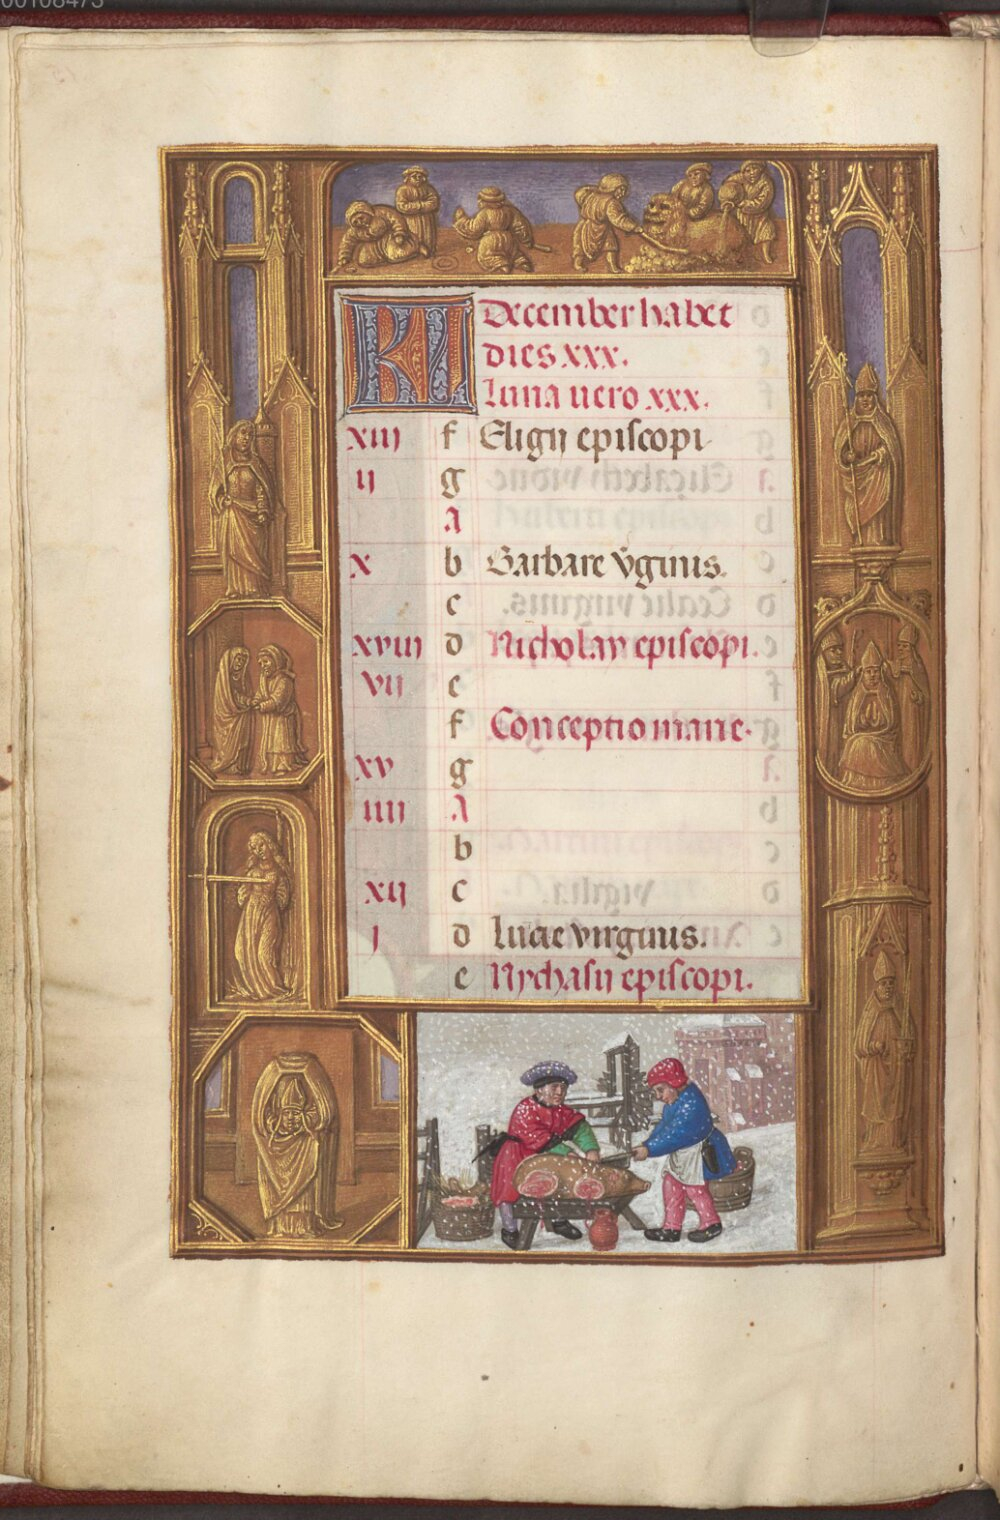 00108473
KL December habet
dies xxx.
Luna uero xxx.
xiij f Eligij episcopi
ij g
A
x b Barbare v̄ginis.
c
xviij d Nicholay episcopi.
vij e
f Conceptio marie.
xv g
iiij A
b
xij c
j d Lucie virginis.
e Nychasij episcopi.